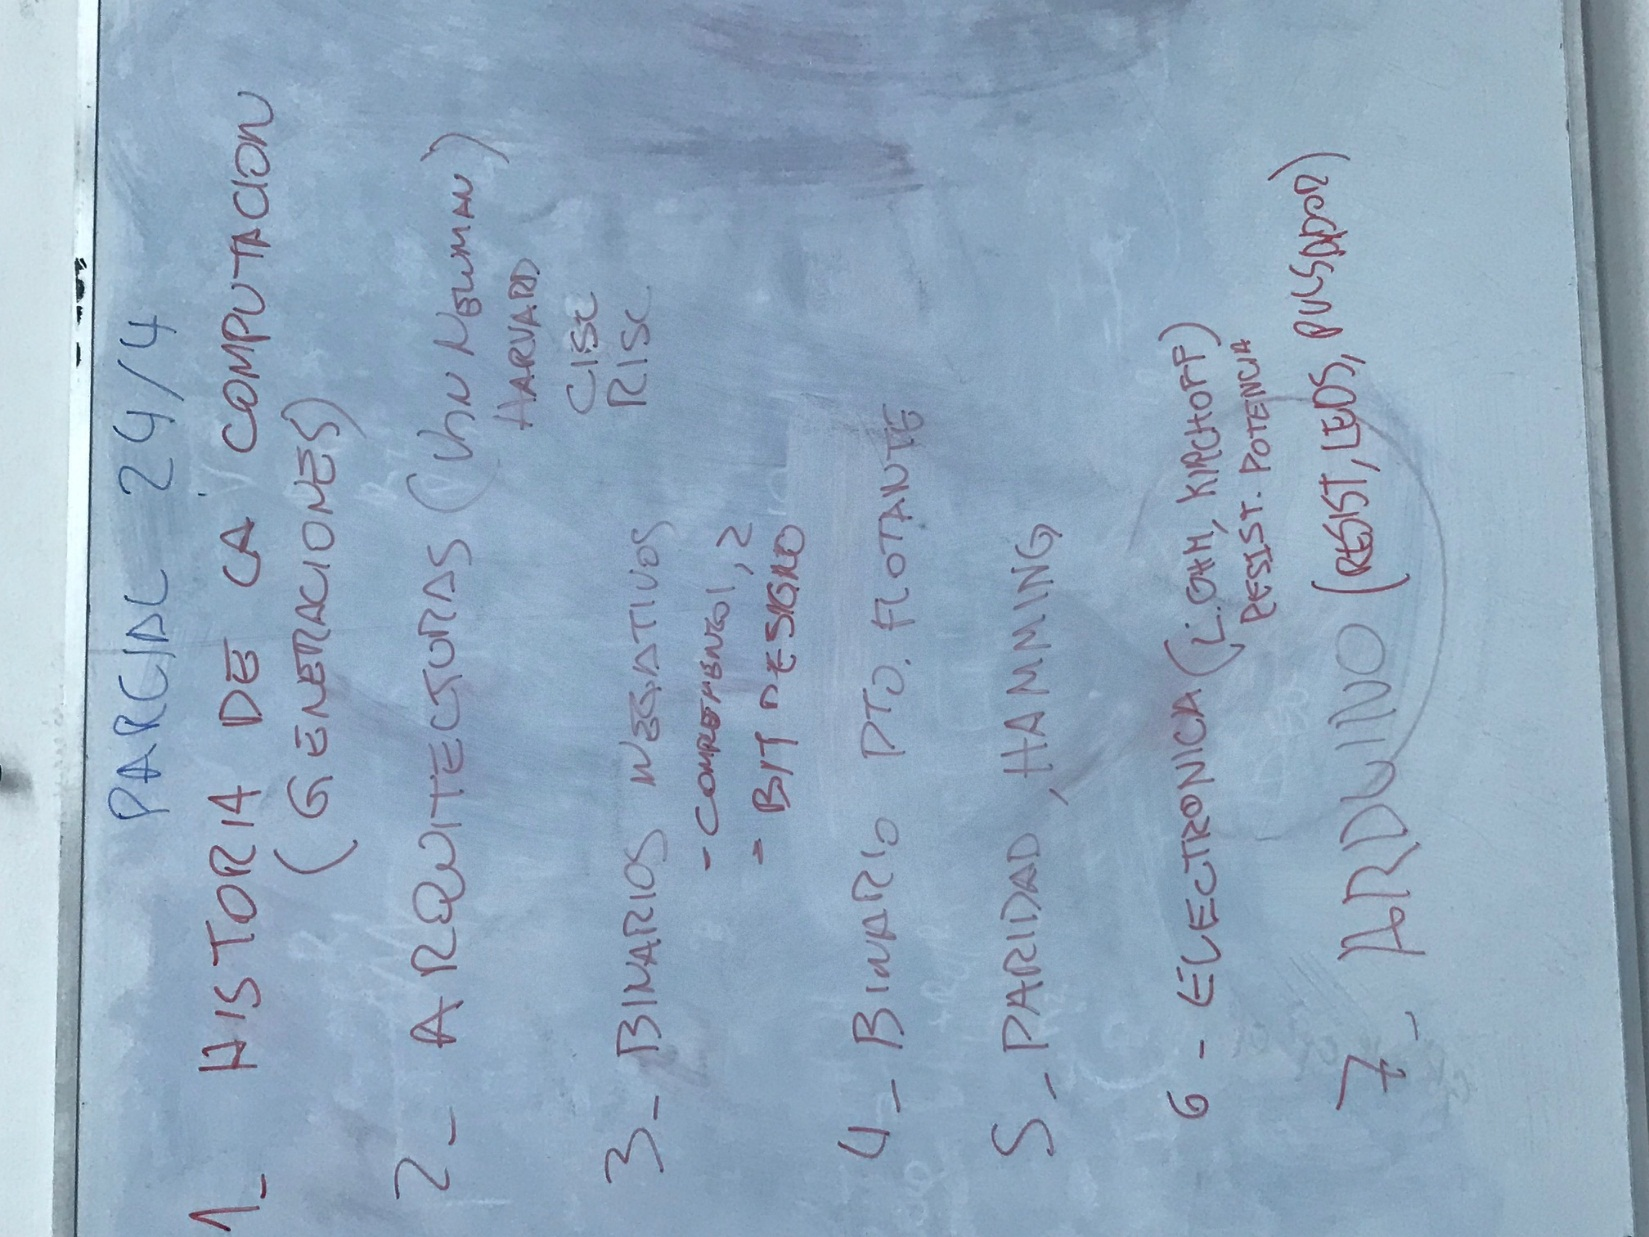 PARCIAL 24/4
1_ HISTORIA DE LA COMPUTACION
(GENERACIONES)
2_ ARQUITECTURAS (VON NEUMAN)
HARVARD
CISC
RISC
3_ BINARIOS NEGATIVOS
- COMPLEMENTO 1, 2
= BIT DE SIGNO
4_ BINARIO PTO. FLOTANTE
5_ PARIDAD, HAMMING
6 - ELECTRONICA (L. OHM, KIRCHOFF)
RESIST. POTENCIA
7_ ARDUINO (RESIST, LEDS, PULSADOR)